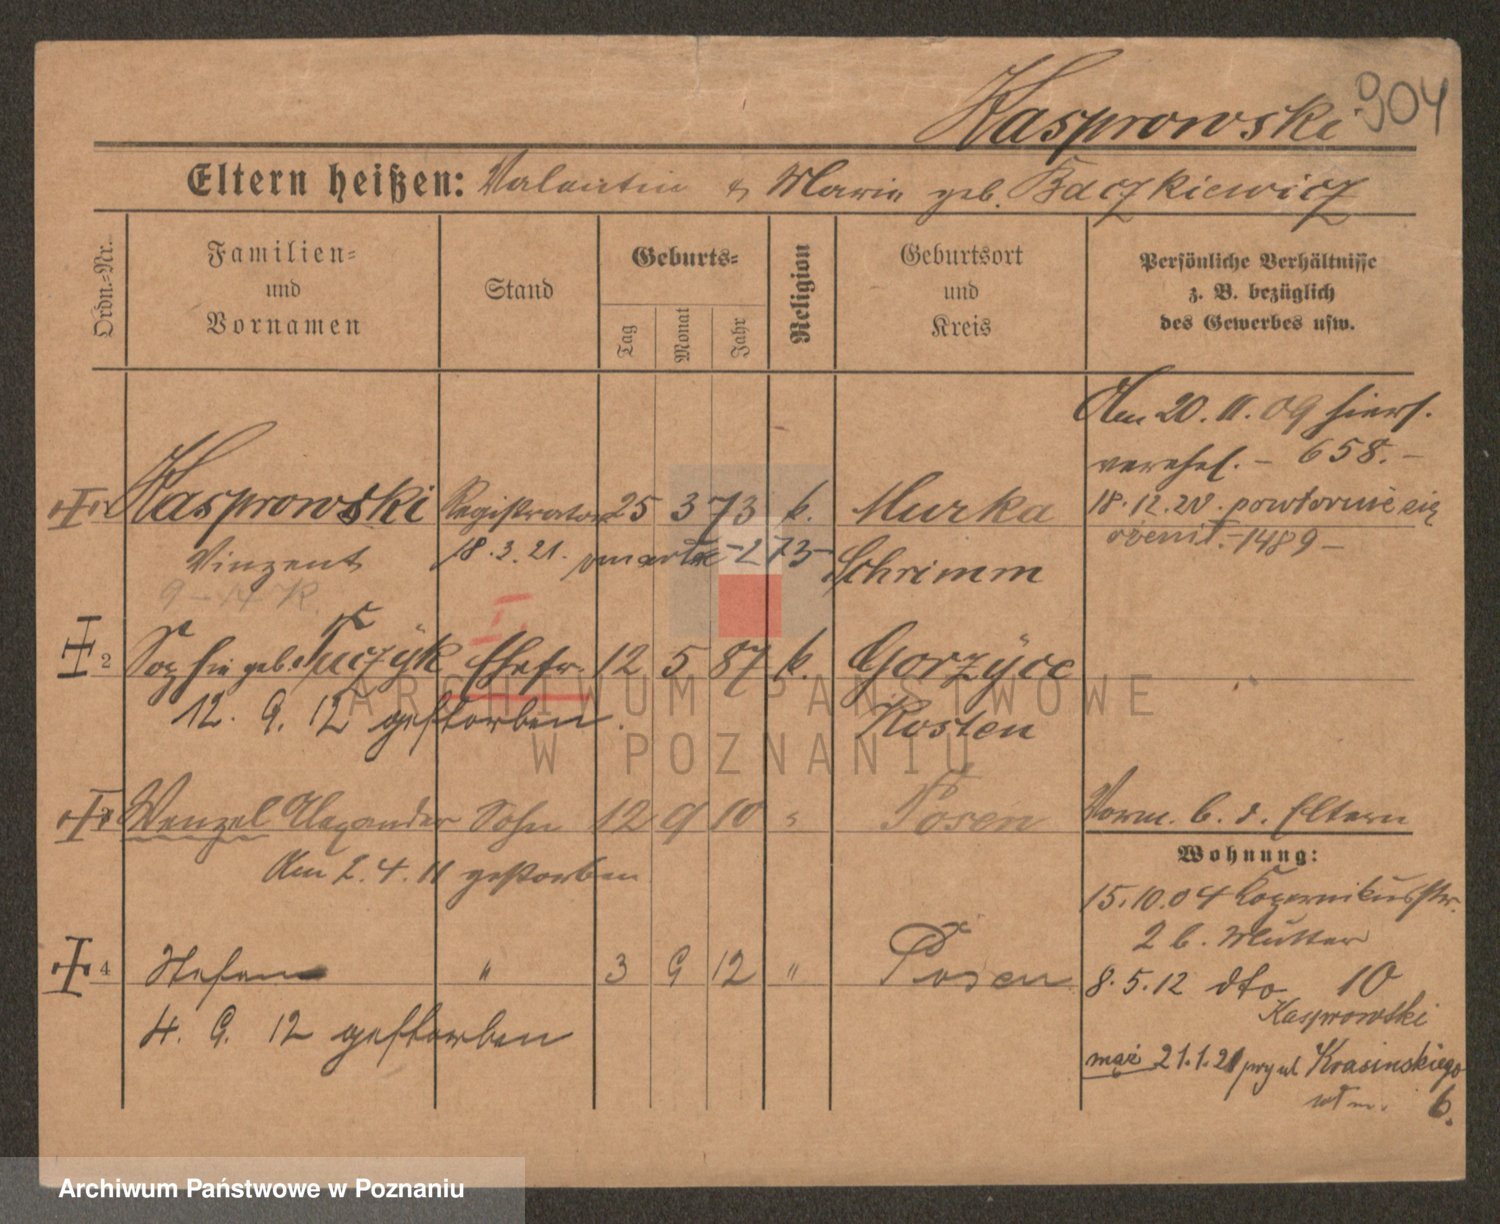 Kasprowski 904
Eltern heißen: Valentin & Marie geb. Baczkiewicz
Ordn.-Nr.
Familien-
und
Vornamen
Stand
Geburts-
Tag
Monat
Jahr
Religion
Geburtsort
und
Kreis
Persönliche Verhältnisse
z. B. bezüglich
des Gewerbes usw.
Am 20. 11. 09 hiers.
verehel. – 658. –
18. 12. 20. powtornie się
ożenił. – 1489 –
Kasprowski Registrator 25 3 73 k. Murka
Vinzent 18. 3. 21. – 273 – Schrimm
9 – 14 K.
I.
2 Sophie geb. Tuczÿk Ehefr. 12 5 87 k. Gorzÿce
12. 9. 12 gestorben. Kosten
3 Wenzel Alexander Sohn 12 9 10 " Posen
Am 2. 4. 11 gestorben
Vorm. b. d. Eltern
Wohnung:
15. 10. 04 Kopernikusstr.
2 b. Mutter
4 Stefan " 3 9 12 " Posen
4. 9. 12 gestorben
8. 5. 12 dto 10
Kasprowski
mąż 21. 1. 21 przy ul Krasinskiego
wł m. 6.
ARCHIWUM PAŃSTWOWE
W POZNANIU
Archiwum Państwowe w Poznaniu